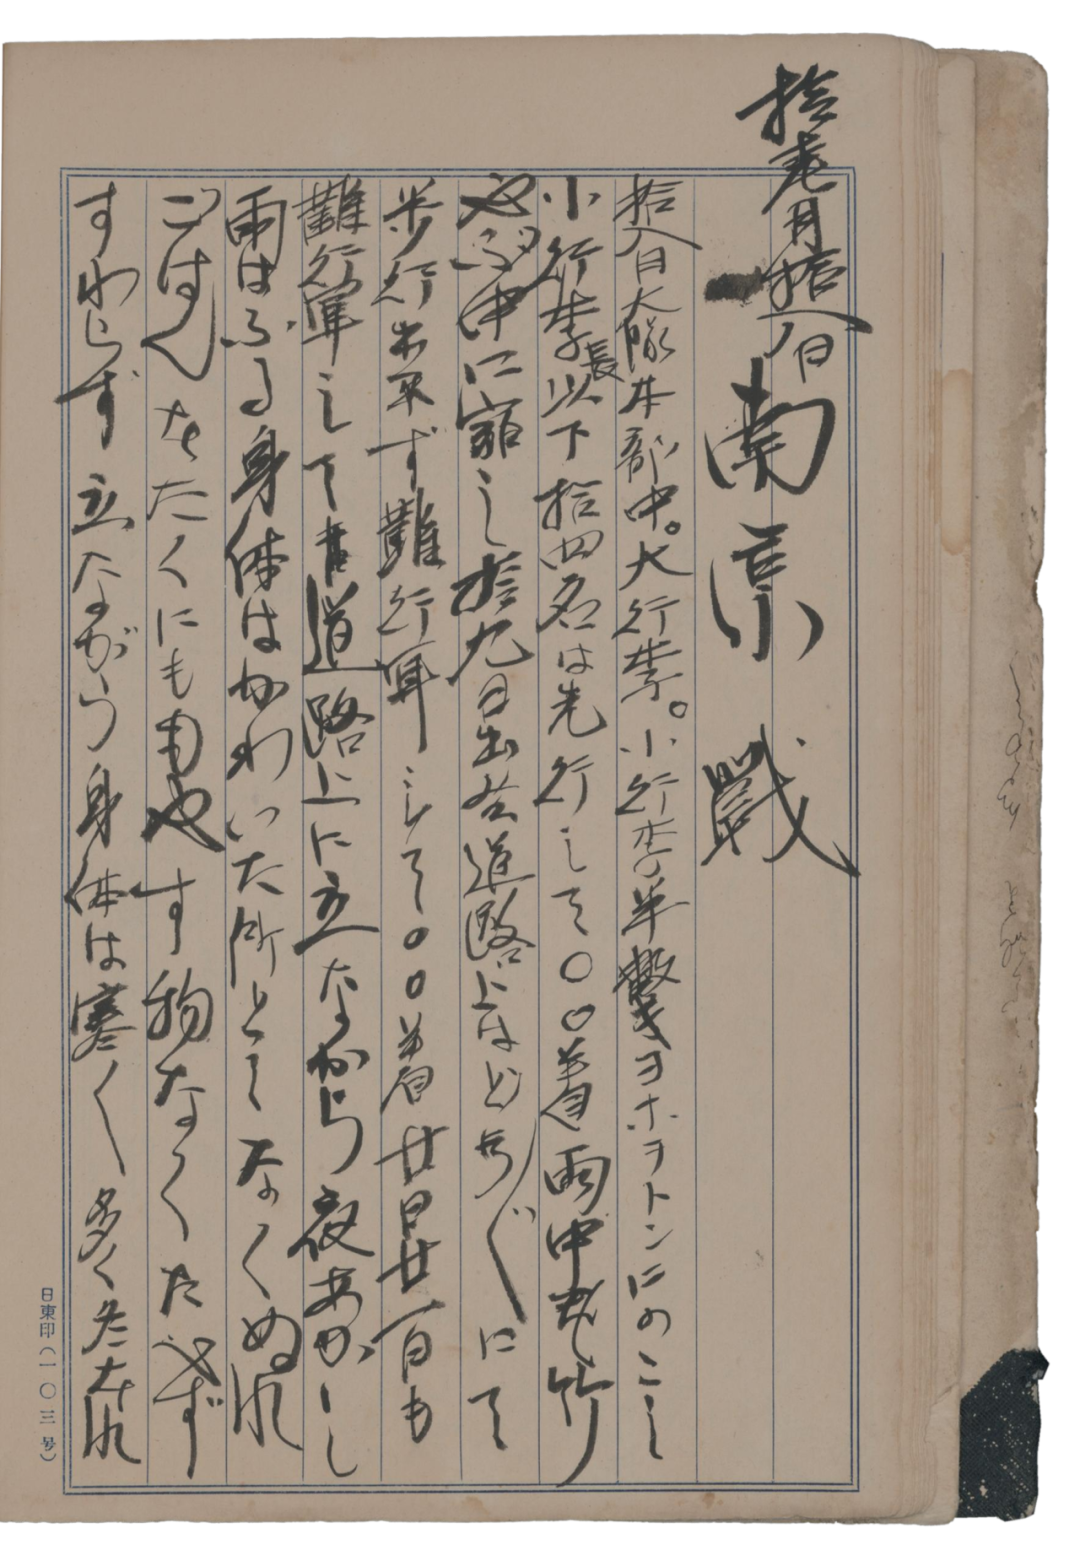 拾壱月拾八日
南京戦
拾八日大隊本部中。大行李。小行李半数ヲホヲトンにのこし
小行李長以下拾四名は先行して〇〇着雨中竹
やぶ中に宿し拾九日出発道路上はどろ〴〵にて
歩行出来ず難行軍して〇〇着廿日廿一日も
難行軍して道路上に立ながら夜あかしし
雨はふる身体はかわいた所とてなくぬれ
ごはんをたくにももやす物なくたべず
すわらず立ながら身体は寒く多くたおれ
日東印(一〇三号)